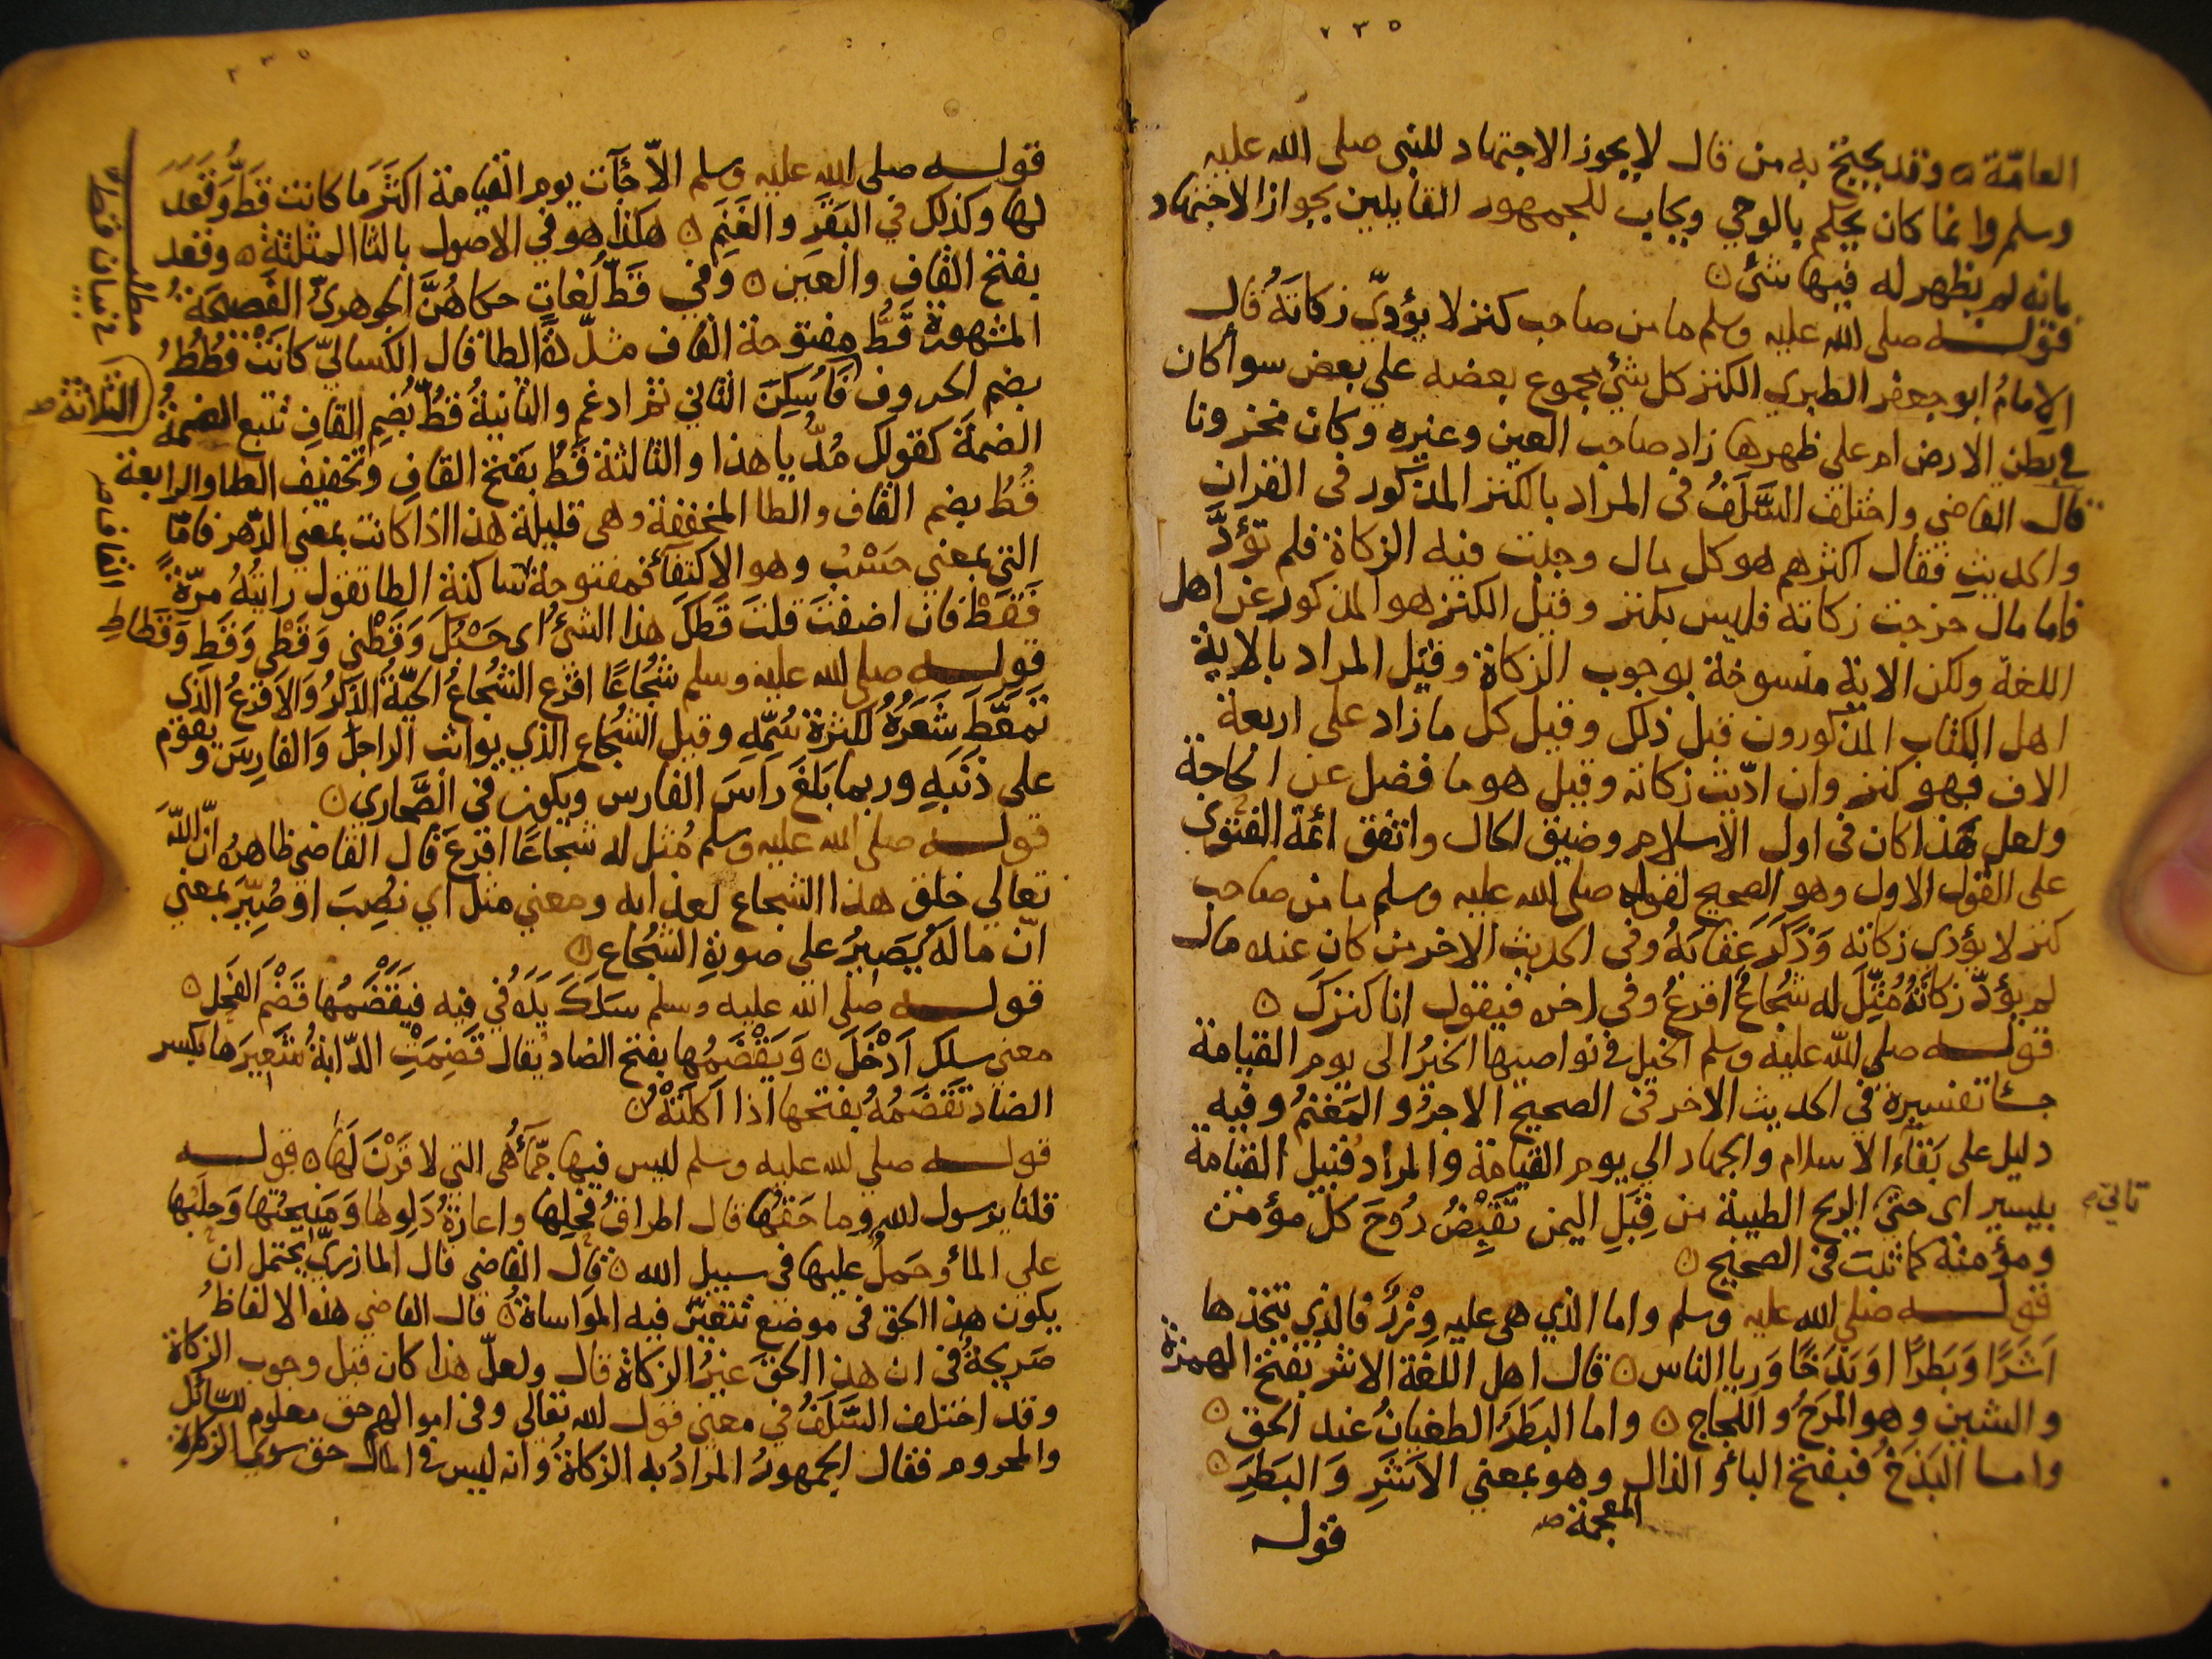 ٢٣٥
العامّة ٥ وقد يحتج به من قال لا يجوز الاجتهاد للنبى صلى الله عليه
وسلم وانما كان يحكم بالوحي ويجاب للجمهور القايلين بجواز الاجتهاد
بانه لم يظهر له فيها شئ ٥
قولـــه صلى الله عليه وسلم ما من صاحب كنز لا يؤدّي زكاتَهُ قال
الامامُ ابو جعفر الطبري الكنز كل شئ مجموع بعضه على بعض سوأ كان
في بطن الارض ام على ظهرها زاد صاحب العين وغيره وكان مخزونا
قال القاضي واختلف السَّلَفُ فى المراد بالكنز المذكور فى القران
والحديث فقال اكثرهم هو كل مال وجبت فيه الزكاة فلم تؤدَّ
فاما مال خرجت زكاته فليس بكنز وقيل الكنز هو المذكور عن اهل
اللغة ولكن الاية منسوخة بوجوب الزكاة وقيل المراد بالاية
اهل الكتاب المذكورون قبل ذلك وقيل كل ما زاد على اربعة
الاف فهو كنز وان ادّيت زكاته وقيل هو ما فضل عن الحاجة
ولعل هذا كان فى اول الاسلام وضيق الحال واتفق ائمة الفتوى
على القول الاول وهو الصحيح لقوله صلى الله عليه وسلم ما من صاحب
كنز لا يؤدى زكاته وَذَكَرَ عِقَابَهُ وفى الحديث الاخر من كان عنده مال
لم يؤدّ زكاتَهُ مُثِّلَ له شُجاعُ اقرعُ وفى اخره فيقول انا كنزكَ ٥
قولـــه صلى الله عليه وسلم الخيل فى نواصيها الخيرُ الى يوم القيامة
جأ تفسيره فى الحديث الاخر فى الصحيح الاجرُ والمَغْنَمُ وفيه
دليل على بَقَاءِ الاسلام والجهاد الى يوم القيامة والمراد قبيل القيامة
بيسير اى حتى تاتي الريح الطيبة من قِبَلِ اليمن تَقْبِضُ رُوْحَ كل مؤمن
ومؤمنة كما ثبت فى الصحيح ٥
قولـــه صلى الله عليه وسلم واما الذي هى عليه وِزْرٌ فالذي يتخذها
اَشَرًا وَبَطَرًا او بَذَخًا وَريا الناس ٥ قال اهل اللغة الاشر بفتح الهمزة
والشين وهو المَرَحُ واللَجاج ٥ واما البَطَرُ الطغيانُ عند الحق ٥
وامـا البَذَخُ فبفتح البأ والذال المعجمة صح وهو بمعنى الاَشَرِ وَالبَطَرِ ٥
قولـه
٢٣٥
قولـــه صلى الله عليه وسلم الاّ جَأت يوم القيامة اكثَرَ مَا كانت قطُّ وَقَعَدَ
لها وكذلك في البَقَرِ والغَنَمِ ٥ هكذا هو في الاصول بالثا المثلثة ٥ وقعد
بفتح القاف والعين ٥ وفي قَطّ لُغات حكاهُنَّ الجوهرىّ الفَصيحَةُ
المشهورة قَطُّ مفتوحة القاف مشدّدة الطا قال الكسائيّ كانَتْ قُطُطُ
بضم الحروف الثلاثة صح فَاُسكِنَ الثاني ثم ادغم والثانيةُ قُطُّ بُضمِ القافِ تتبع الضمةُ
الضمةَ كقولك مُدُّ يا هذا والثالثة قَطُ بفتح القاف وتخفيف الطا والرابعة
قُطُ بضم القاف والطا المخففة وهى قليلة هذا اذا كانت بمعنى الدّهر فامّا
التى بمعنى حَسْبُ وهو الاكتفأ فمفتوحة القاف صح ساكنة الطا تقول رايتُهُ مرّةً
فَقَطْ فان اضفتَ قلتَ قَطْكَ هذا الشئُ اى حَسْبُكَ وَقَطْنِي وَقَطْى وَقَطِ وَقَطَاطِ
مطلب
في بيان قط
قولـــه صلى الله عليه وسلم شُجَاعًا اقرع الشُجاعُ الحيّةُ الذَّكرُ وَالاقرَعُ الذى
تَمَعَّطَ شَعَرُهُ لكثرة سُمِّهِ وقيل الشُجاع الذي يواثب الراجلَ وَالفارِسَ ويقوم
على ذَنَبِهِ وربما بَلَغَ رَاسَ الفارس ويكون فى الصَّحارِى ٥
قولـــه صلى الله عليه وسلم مُثل له شجاعًا اقرعَ قال القاضى ظاهرهُ انّ اللهَ
تعالي خلق هذا الشجاع لعذابه ومعني مثل اي نُصِبَ او صُيِّرَ بمعني
انّ مالَهُ يَصِيرُ على صورةِ الشُجاع ٥
قولـــه صلى الله عليه وسلم سَلَكَ يَدَهُ في فيه فَيَقْضَمُها قَضْمَ الفَحلِ ٥
معنى سلك اَدْخَلَ ٥ وَيَقْضَمُها بفتح الضاد يُقال قَضِمَتِ الدّابةُ شَعِيرَها بكسر
الضاد تَقْضَمُهُ بفتحها اذا اكلَتْهُ ٥
قولـــه صلى الله عليه وسلم ليس فيها جَمّأُ هى التي لا قَرْنَ لَهَا ٥ قولـــه
قلنا يرسول الله وما حَقُّها قال اطراقُ فَحْلِها واعارَةُ دَلوِها وَمَنِيحَتُها وَحلبُها
على المأ وحَمْلُ عليها فى سبيل الله ٥ قال القاضي قال المازريّ يحتمل ان
يكون هذا الحق فى موضع تتعَيّن فيه المواساةُ ٥ قال القاضي هذه الالفاظُ
صَريحةٌ فى ان هذا الحقَ غيرُ الزكاة قال ولعلّ هذا كان قبل وجوب الزكاة
وقد اختلف السَّلَفُ في معنى قول لله تعالى وفى اموالهم حق معلوم للسّائل
والمحروم فقال الجمهورُ المرادُ به الزكاةُ وانه ليس فى المال حق سوى الزكاة